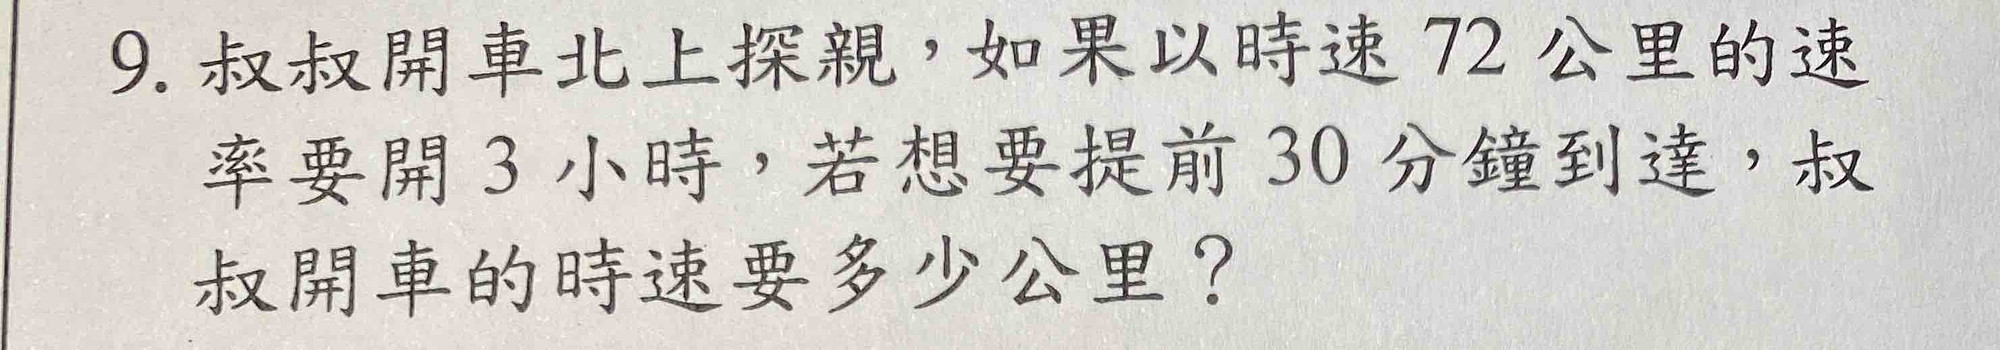 9. 叔叔開車北上探親，如果以時速 72 公里的速
率要開 3 小時，若想要提前 30 分鐘到達，叔
叔開車的時速要多少公里？